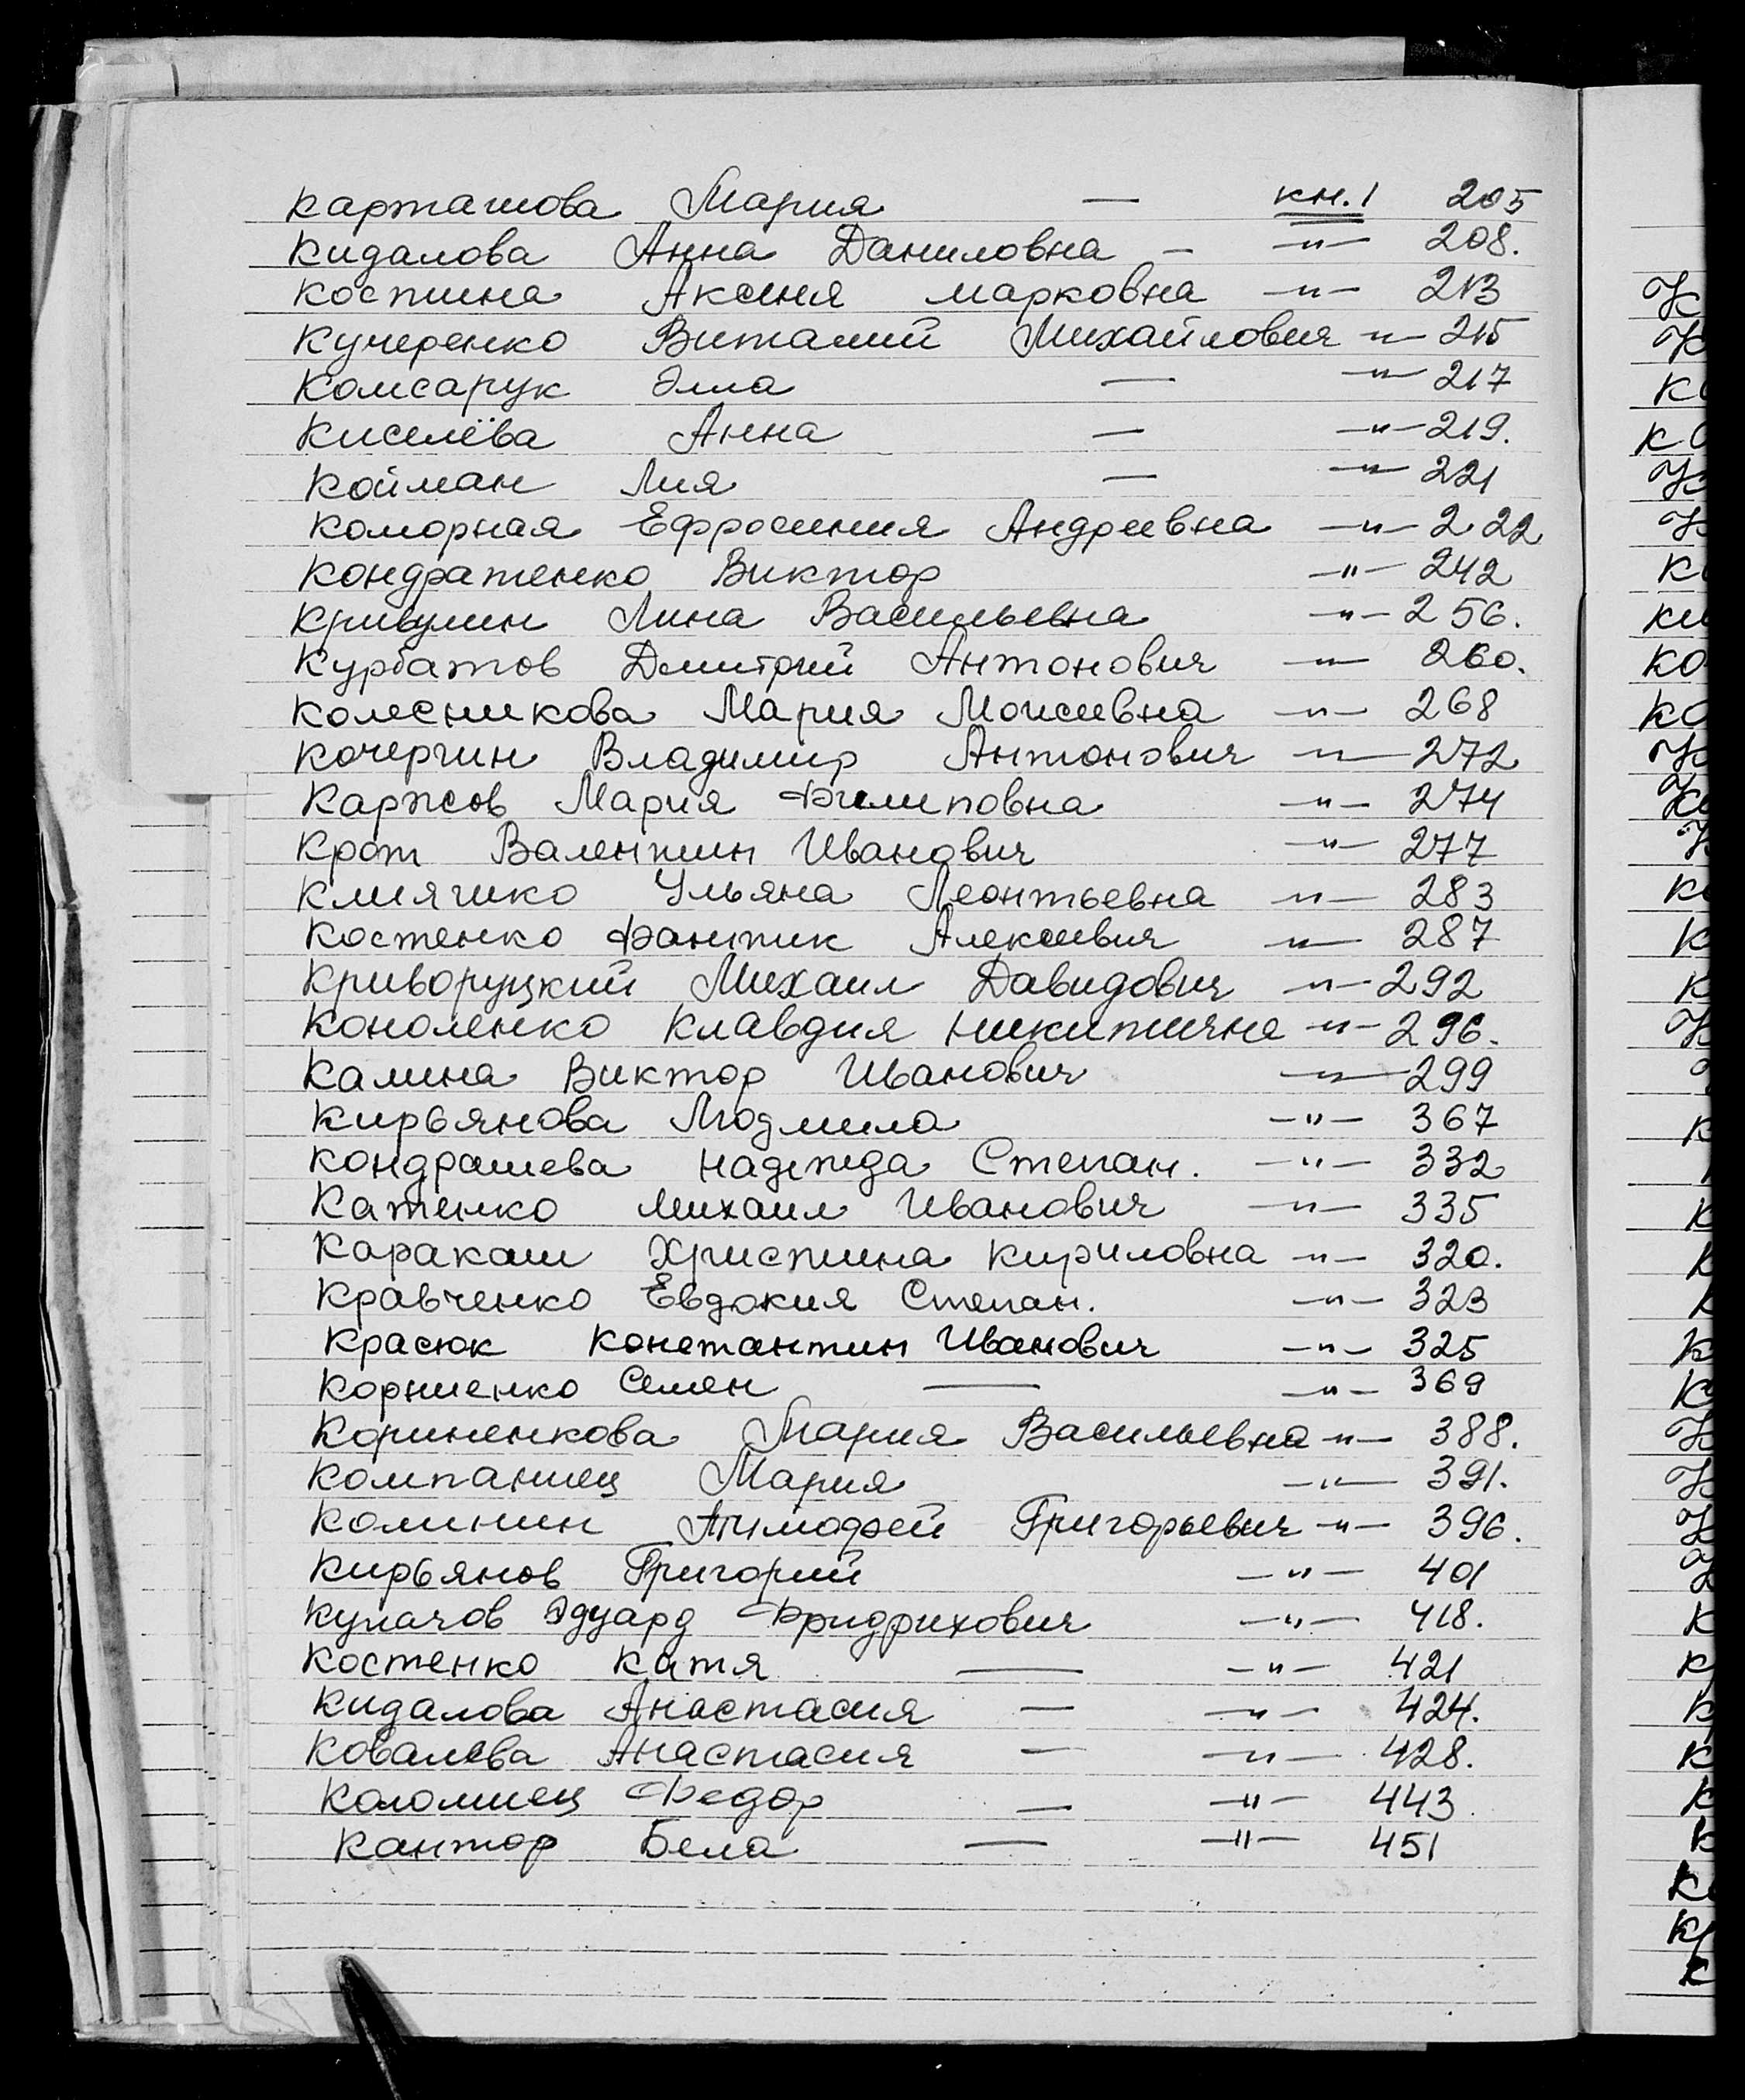 Карташова Мария — кн. 1 205
Кидалова Анна Даниловна — —"— 208.
Костина Аксиня Марковна —"— 213
Кучеренко Виталий Михайлович —"— 215
Комсарук Элла — —"— 217
Киселёва Анна — —"— 219.
Койман Лия — —"— 221
Коморная Ефросиния Андреевна —"— 222
Кондратенко Виктор —"— 242
Кривулин Лина Васильевна —"— 256.
Курбатов Дмитрий Антонович —"— 260.
Колесникова Мария Моисеевна —"— 268
Кочергин Владимир Антонович —"— 272
Каржов Мария Филиповна —"— 274
Крот Валентин Иванович —"— 277
Клиячко Ульяна Леонтьевна —"— 283
Костенко Фантик Алексеевич —"— 287
Криворуцкий Михаил Давидович —"— 292
Кононенко Клавдия Никитична —"— 296.
Калина Виктор Иванович —"— 299
Кирьянова Людмила —"— 367
Кондрашева Надежда Степан. —"— 332
Катенко Михаил Иванович —"— 335
Каракаш Христина Кириловна —"— 320.
Кравченко Евдокия Степан. —"— 323
Красюк Константин Иванович —"— 325
Корниенко Семен — —"— 369
Кориненкова Мария Васильевна —"— 388.
Компаниец Мария —"— 391.
Калинин Тимофей Григорьевич —"— 396.
Кирьянов Григорий —"— 401
Купачов Эдуард Фридрихович —"— 418.
Костенко Катя — —"— 421
Кидалова Анастасия — —"— 424.
Ковалева Анастасия — —"— 428.
Коломиец Федор — —"— 443
Кантор Бела — —"— 451